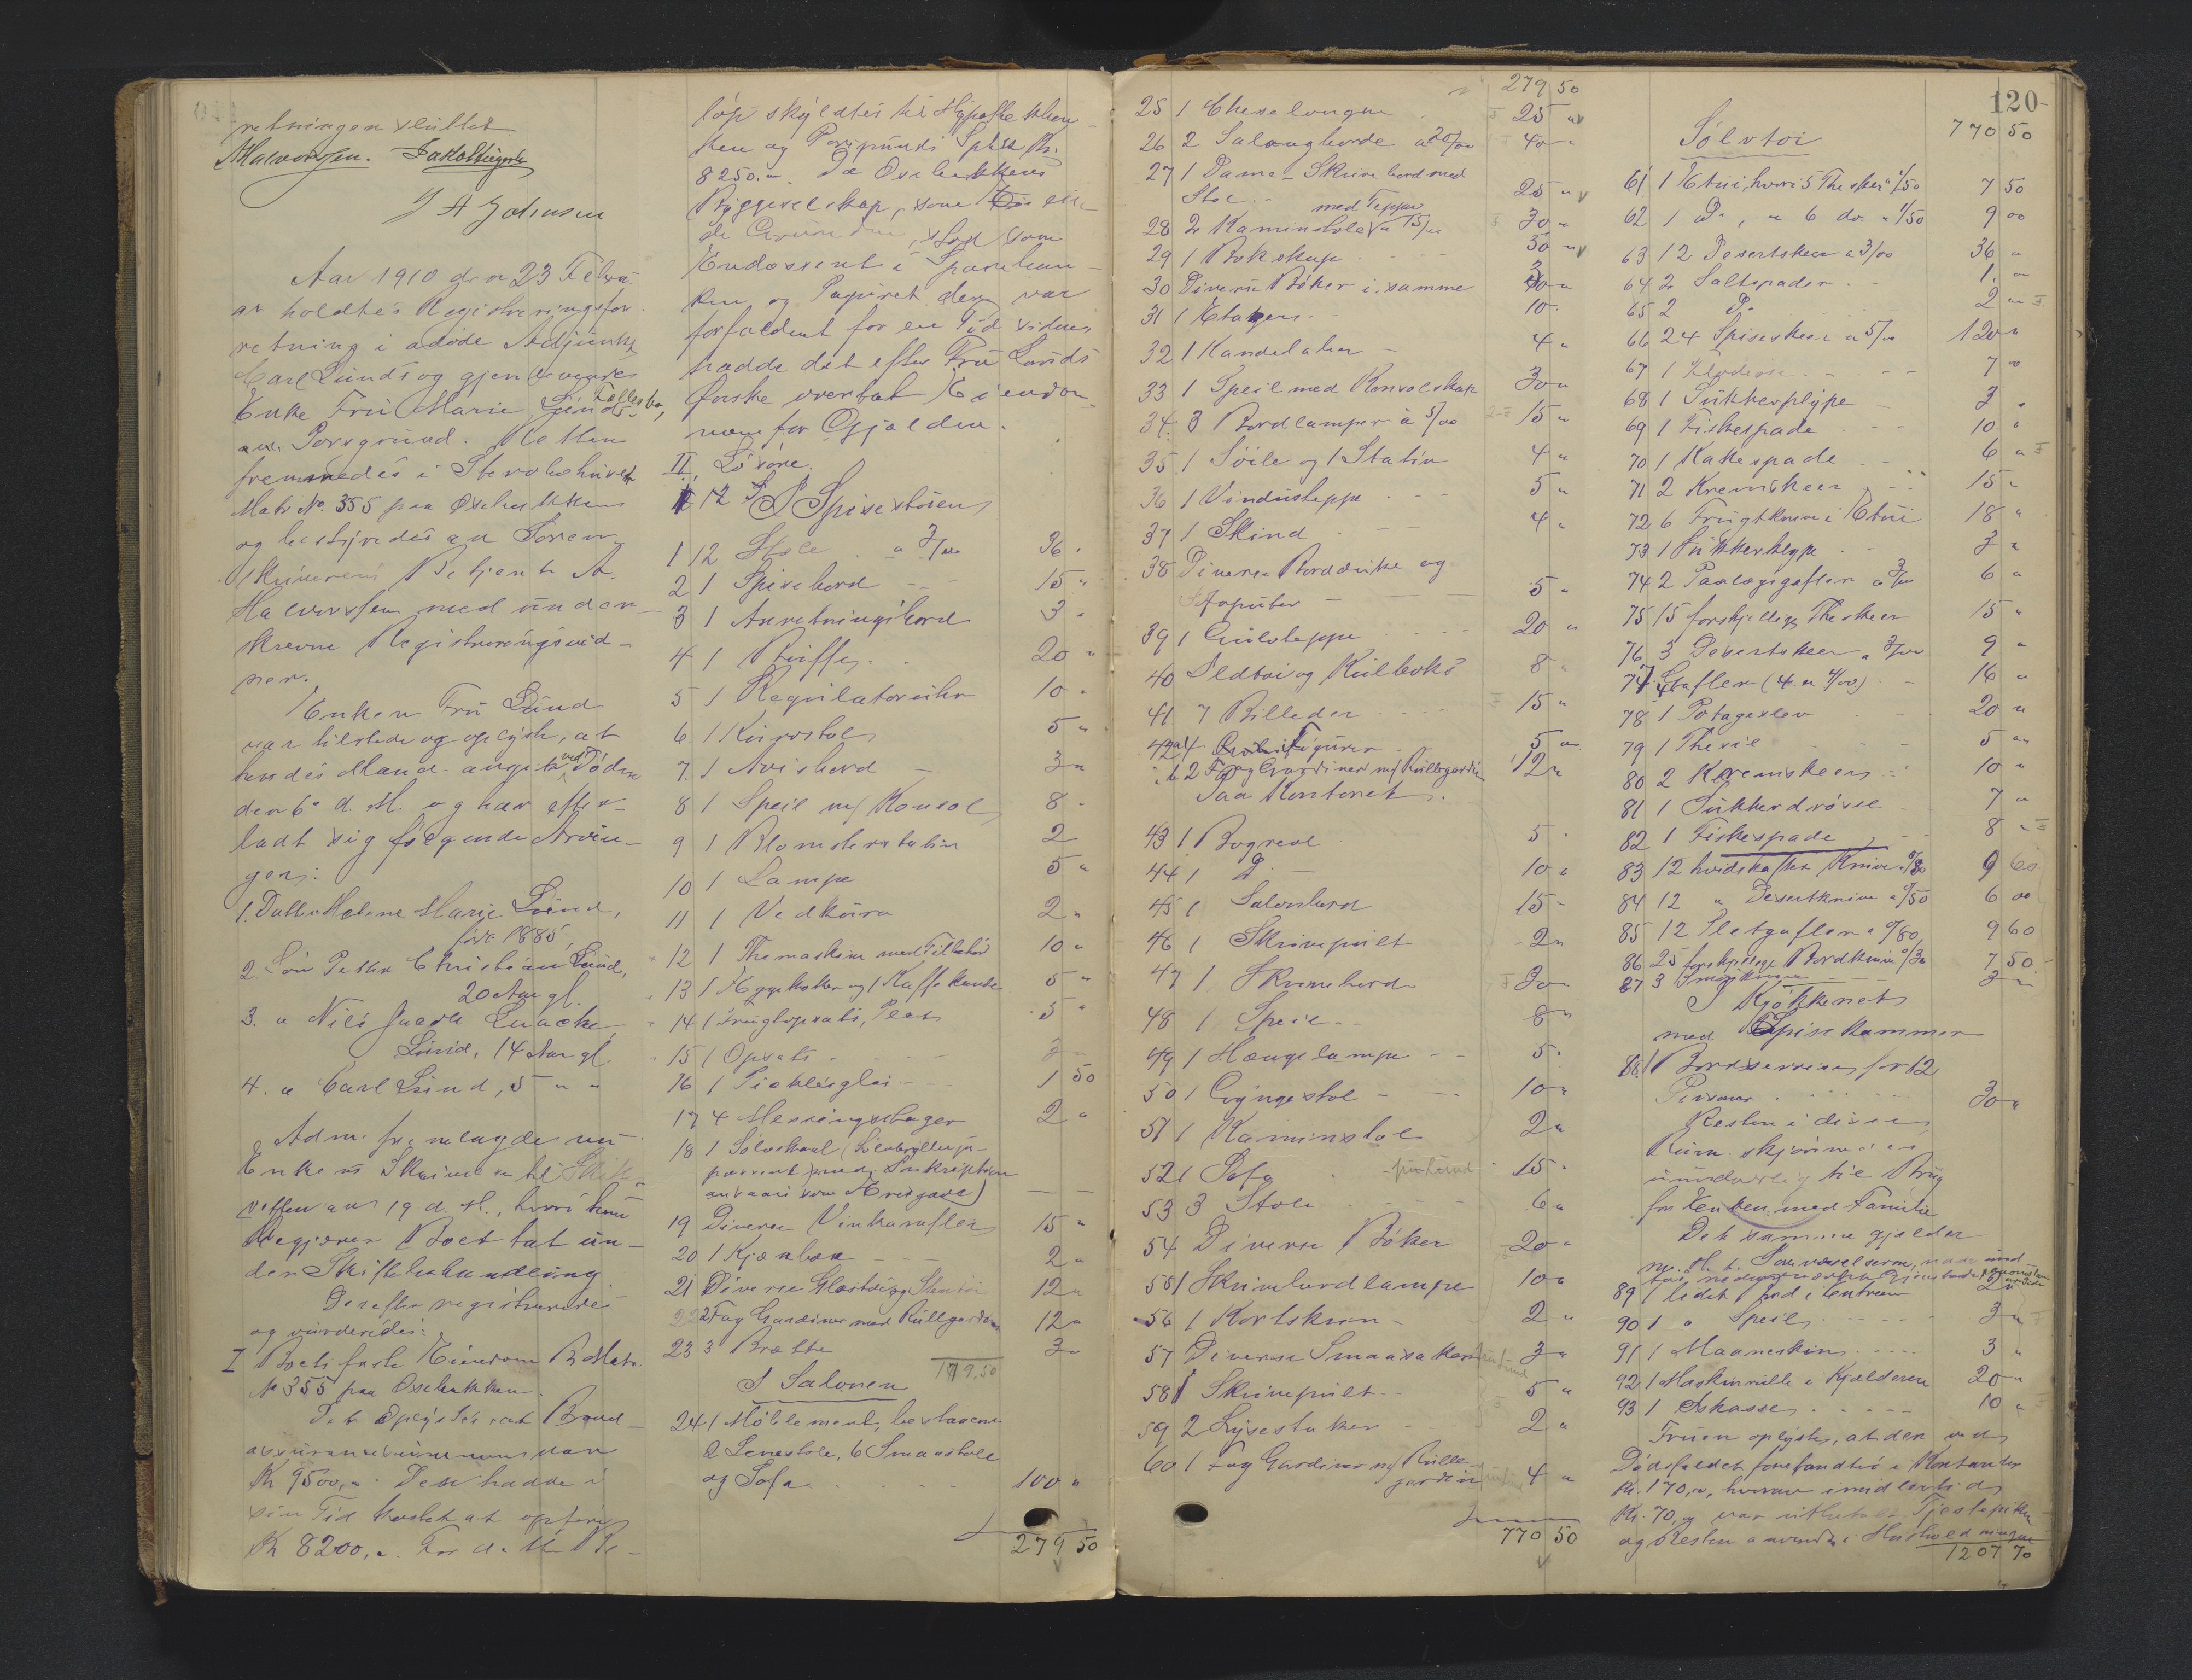 retningen sluttet.
Halvorsen. Jakob
J A Johnsen
Aar 1910 den 23 Febru-
ar holdtes Registreringsfor-
retning i afdøde Adjunkt
Carl Lunds og gjenlevende
Enke Fru Marie Lunds Fællesbo,
av Porsgrund. Retten
fremmedes i Stervbohuset
Matr No. 355 paa Osebakken
og bestyredes av Soren-
skriverens Betjent A.
Halvorsen med under-
skrevne Registreringsvid-
ner.
Enken Fru Lund
var tilstede og oplyste, at
hendes Mand avgik ved Døden
den 6te d. M. og har efter-
ladt sig følgende Arvin-
ger:
1. Datter Helene Marie Lund,
født 1885,
2. Søn Petter Christian Lund,
20 Aar gl.
3. " Nils Juell Laacke
Lund, 14 Aar gl
4. " Carl Lund, 5 " "
Adm. fremlagde nu
Enkens Skrivelse til Skifte-
retten av 19 d. M., hvori hun
begjærer Boet tat un-
der Skiftebehandling
Derefter registreredes
og vurderedes:
I Boets faste Eiendom Matr.
No 355 paa Osebakken.
Det oplystes, at Brand-
assurancesummen var
Kr 9500,". Den hadde i
sin Tid kostet at opføre
Kr 8200,". For d. M. Be-
løp skyldtes til Hypothekban-
ken og Porsgrunds Spbk Kr.
8250.". Da Osebakkens
Byggeselskap, som
stod som
Endossent i Spareban-
ken og Papiret der var
forfaldent for en Tid siden
hadde det efter Fru Lunds
Ønske overtat Eiendom-
men for Gjælden.
II. Løsøre.
I Spisestuen
1 12 Stole a 3/00 36 "
2 1 Spisebord 15 "
3 1 Anretningsbord 3 "
4 1 Buffet 20 "
5 1 Regulatoruhr 10 "
6 1 Kurvstol 5 "
7 1 Avisbord 3 "
8 1 Speil m/ Konsol 8 "
9 1 Blomsterstativ 2
10 1 Lampe 5 "
11 1 Vedkurv 2 "
12 1 Themaskine med Tilbehør 10 "
13 1 Eggekoker og 1 Kaffekande 5 "
14 1 Frugtopsats, Plet 5 "
15 1 Opsats 3
16 1 Picklesglas 1 50
17 4 Messingstager 2 "
18 1 Sølvskaal (Sølvbryllups-
present med Inskription
ansaaes som Æresgave) — —
19 Diverse Vinkarafler 15 "
20 1 Kjøkben 2 "
21 Diverse Glastøi og Stentøi 12 "
22 2 Fag Gardiner med Rullgardin 12 "
23 3 Brætte 3 "
179,50
I Salonen
24 1 Møblement, bestaaende
2 Lenestole, 6 Smaastole
og Sofa 100 "
279 50
279 50
25 1 Chese longue 25 "
26 2 Salongborde a 20/00 40 "
27 1 Dame-Skrivebord med
Stol 25 "
28 2 Kaminstole med Teppe a 15/00 30 "
29 1 Bokskap 30 "
30 Diverse Bøker i samme 30 "
31 1 Etager 10 "
32 1 Kandelaber 4 "
33 1 Speil med Konsolskap 30 "
34 3 Bordlamper à 5/00 15 "
35 1 Søile og 1 Stativ 4 "
36 1 Vindusteppe 5 "
37 1 Skind 4 "
38 Diverse Bordduker og
Sofaputer 5 "
39 1 Gulvteppe 20 "
40 Ildtøi og Kulboks 8 "
41 7 Billeder 15 "
42 a 4 Figurer 5 "
" b 2 Fag Gardiner m/ Rullegardin 12 "
Paa Kontoret.
43 1 Bogreol 5 "
44 1 Do 10 "
45 1 Salonbord 15 "
46 1 Skrivepult 2 "
47 1 Skrivebord 30 "
48 1 Speil 8 "
49 1 Hængelampe 5 "
50 1 Gyngestol 10 "
51 1 Kaminstol 2 "
52 1 Sofa 15 "
53 3 Stole 6 "
54 Diverse Bøker 20 "
55 1 Skrivebordlampe 10 "
56 1 Kortskrin 2 "
57 Diverse Smaasaker 3 "
58 1 Skrivepult 5 "
59 2 Lysestaker 2 "
60 1 Fag Gardiner m/ Rulle-
gardin 4 "
770 50
120
770 50
Sølvtøi
61 1 Etui, hvori 5 Theskeer a 1/50 7 50
62 1 Do, " 6 do. a 1/50 9 00
63 12 Desertskeer a 3/00 36 "
64 2 Saltspader 1 "
65 2 Do 2 "
66 24 Spiseskeer a 5/00 120 "
67 1 Flødeøse 7 "
68 1 Sukkerplype 3 "
69 1 Fiskespade 10 "
70 1 Kakespade 6 "
71 2 Kremskeer 15 "
72 6 Frugtknive i Etui 18 "
73 1 Sukkerklype 3 "
74 2 Paalægsgafler a 3/00 6 "
75 15 forskjellige Theskeer 15 "
76 3 Desertskeer a 3/00 9 "
77 4 Gafler (4 a 4/00) 16 "
78 1 Potageslev 20 "
79 1 Thesil 5 "
80 2 Kremskeer 10 "
81 1 Sukkerdrøsse 7 "
82 1 Fiskespade 8 "
83 12 hvidskaftet Knive a 0/80 9 60
84 12 " Desertknive a 0/50 6 00
85 12 Pletgafler a 0/80 9 60
86 25 forskjellige Bordknive a 0/30 7 50
87 3 3 "
I Kjøkkenet
med Spisekammer
88 1 Bordservise for 12
Personer 30 "
Resten i disse
Rum skjønnedes
uundværlig til Brug
for Enken med Familie
Det samme gjælder
m. H. t. Soveværelserne,
89 1 lidet Bord i Entreen 2 "
90 1 " Speil 3 "
91 1 Maaneskin 3 "
92 1 Maskinrulle i Kjælderen 20 "
93 1 Iskasse 10 "
Fruen oplyste, at der ved
Dødsfaldet forefandtes i Kontanter
Kr. 170,", hvorav imidlertid
Kr. 70," var utbetalt Tjenestepiken
og Resten anvendt i Husholdningen
1207 70